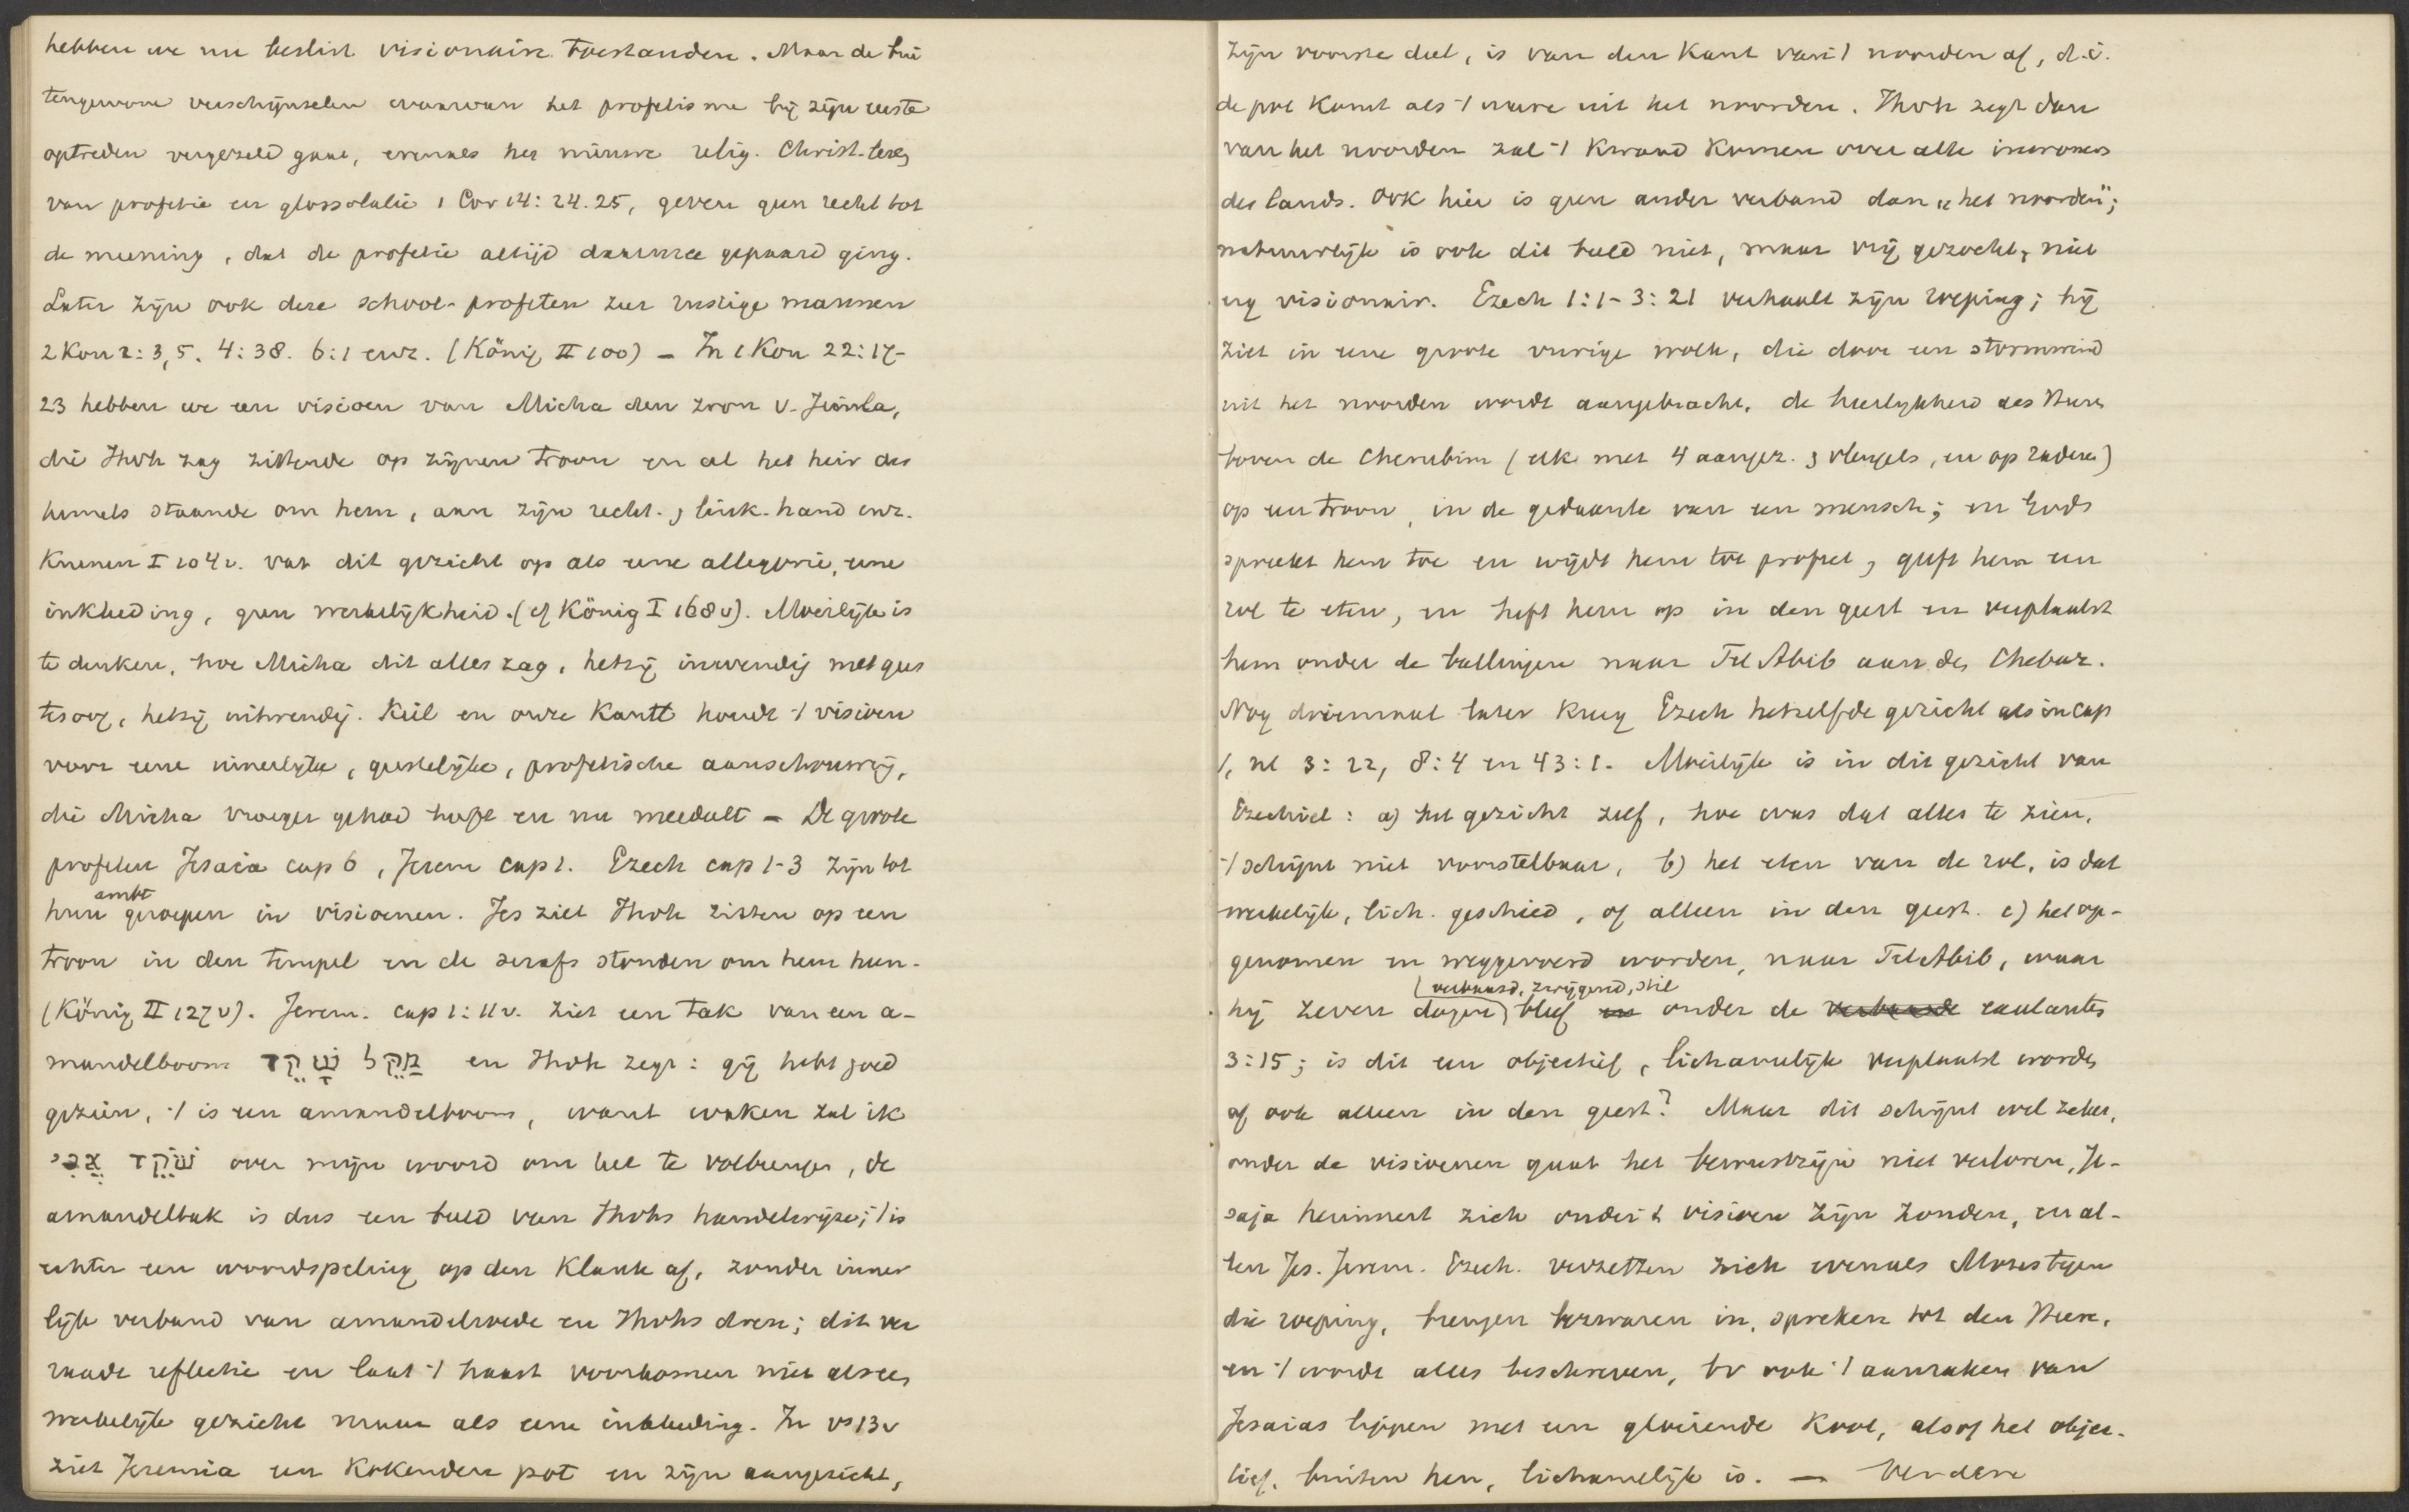 hebben we nu beslist visionaire toestanden. Maar de bui
tengewone verschijnselen waarvan het profetisme bij zijn eerste
optreden vergezeld gaat, evenals het nieuwe relig. Christ. leven
van profetie en glossolalie 1 Cor 14:24.25, geven geen recht tot
de meening, dat de profetie altijd daarmee gepaard ging.
Later zijn ook deze school-profeten zeer rustige mannen
2 Kon 2:3,5. 4:38. 6:1 enz. (König II 100) – In 1 Kon 22:17-
23 hebben we een visioen van Micha den zoon v. Jimla,
die Jhvh zag zittende op zijnen troon en al het heir des
hemels staande om hem, aan zijn recht- & link-hand enz.
Kuenen I 104v. vat dit gezicht op als eene allegorie, eene
inkleeding, geen werkelijkheid. (cf König I 168v). Moeilijk is
te denken, hoe Micha dit alles zag, hetzij inwendig met gees
tesoog, hetzij uitwendig. Keil en onze Kantt houdt 't visioen
voor eene innerlijke, geestelijke, profetische aanschouwing,
die Micha vroeger gehad heeft en nu meedeelt – De groote
profeten Jesaia cap 6, Jerem cap 1. Ezech cap 1-3 zijn tot
hun ambt geroepen in visioenen. Jes ziet Jhvh zitten op een
troon in den tempel en de serafs stonden om hem heen.
(König II 127v). Jerem. cap 1:11v. ziet een tak van een a-
mandelboom מַקֵּל שָׁקֵד en Jhvh zegt: gij hebt goed
gezien, 't is een amandelboom, want waken zal ik
שֹׁקֵד אֲנִי over mijn woord om het te volbrengen, de
amandeltak is dus een beeld van Jhvhs handelwijze; 't is
echter een woordspeling op den klank af, zonder inner
lijk verband van amandelroede en Jhvhs doen; dit ver
raadt reflectie en laat 't haast voorkomen niet als een
werkelijk gezicht maar als eene inkleeding. In vs 13v
ziet Jeremia een kokenden pot en zijn aangezicht,
zijn voorste deel, is van den kant van 't noorden af, d.i.
de pot komt als 't ware uit het noorden. Jhvh zegt dan
van het noorden zal 't kwaad komen over alle inwoners
des lands. Ook hier is geen ander verband dan „het noorden";
natuurlijk is ook dit beeld niet, maar vrij gezocht, niet
erg visionair. Ezech 1:1-3:21 verhaalt zijn roeping; hij
ziet in eene groote vurige wolk, die door een stormwind
uit het noorden wordt aangebracht, de heerlijkheid des Heeren
boven de Cherubim (elk met 4 aangez. & vleugels, en op raderen)
op een troon, in de gedaante van een mensch; en Gods
spreekt hem toe en wijdt hem tot profeet, geeft hem een
rol te eten, en heft hem op in den geest en verplaatst
hem onder de ballingen naar Tel Abib aan den Chebar.
Nog driemaal later kreeg Ezech hetzelfde gezicht als in cap
1, nl 3:22, 8:4 en 43:1. Moeilijk is in dit gezicht van
Ezechiel: a) het gezicht zelf, hoe was dat alles te zien,
't schijnt niet voorstelbaar, b) het eten van de rol, is dat
werkelijk, lich. geschied, of alleen in den geest. c) het op-
genomen en weggevoerd worden, naar Tel Abib, waar
hij zeven dagen (verbaasd, zwijgend, stil) bleef onder de exulantes
3:15; is dit een objectief, lichamelijk verplaatst worden
of ook alleen in den geest? Maar dit schijnt wel zeker,
onder de visioenen gaat het bewustzijn niet verloren, Je-
saja herinnert zich onder 't visioen zijn zonden, en al-
len Jes. Jerem. Ezech. verzetten zich evenals Mozes tegen
die roeping, brengen bezwaren in, spreken tot den Heere,
en 't wordt alles beschreven, bv ook 't aanraken van
Jesaias lippen met een gloeiende kool, alsof het objec-
tief, buiten hen, lichamelijk is. — Verdere